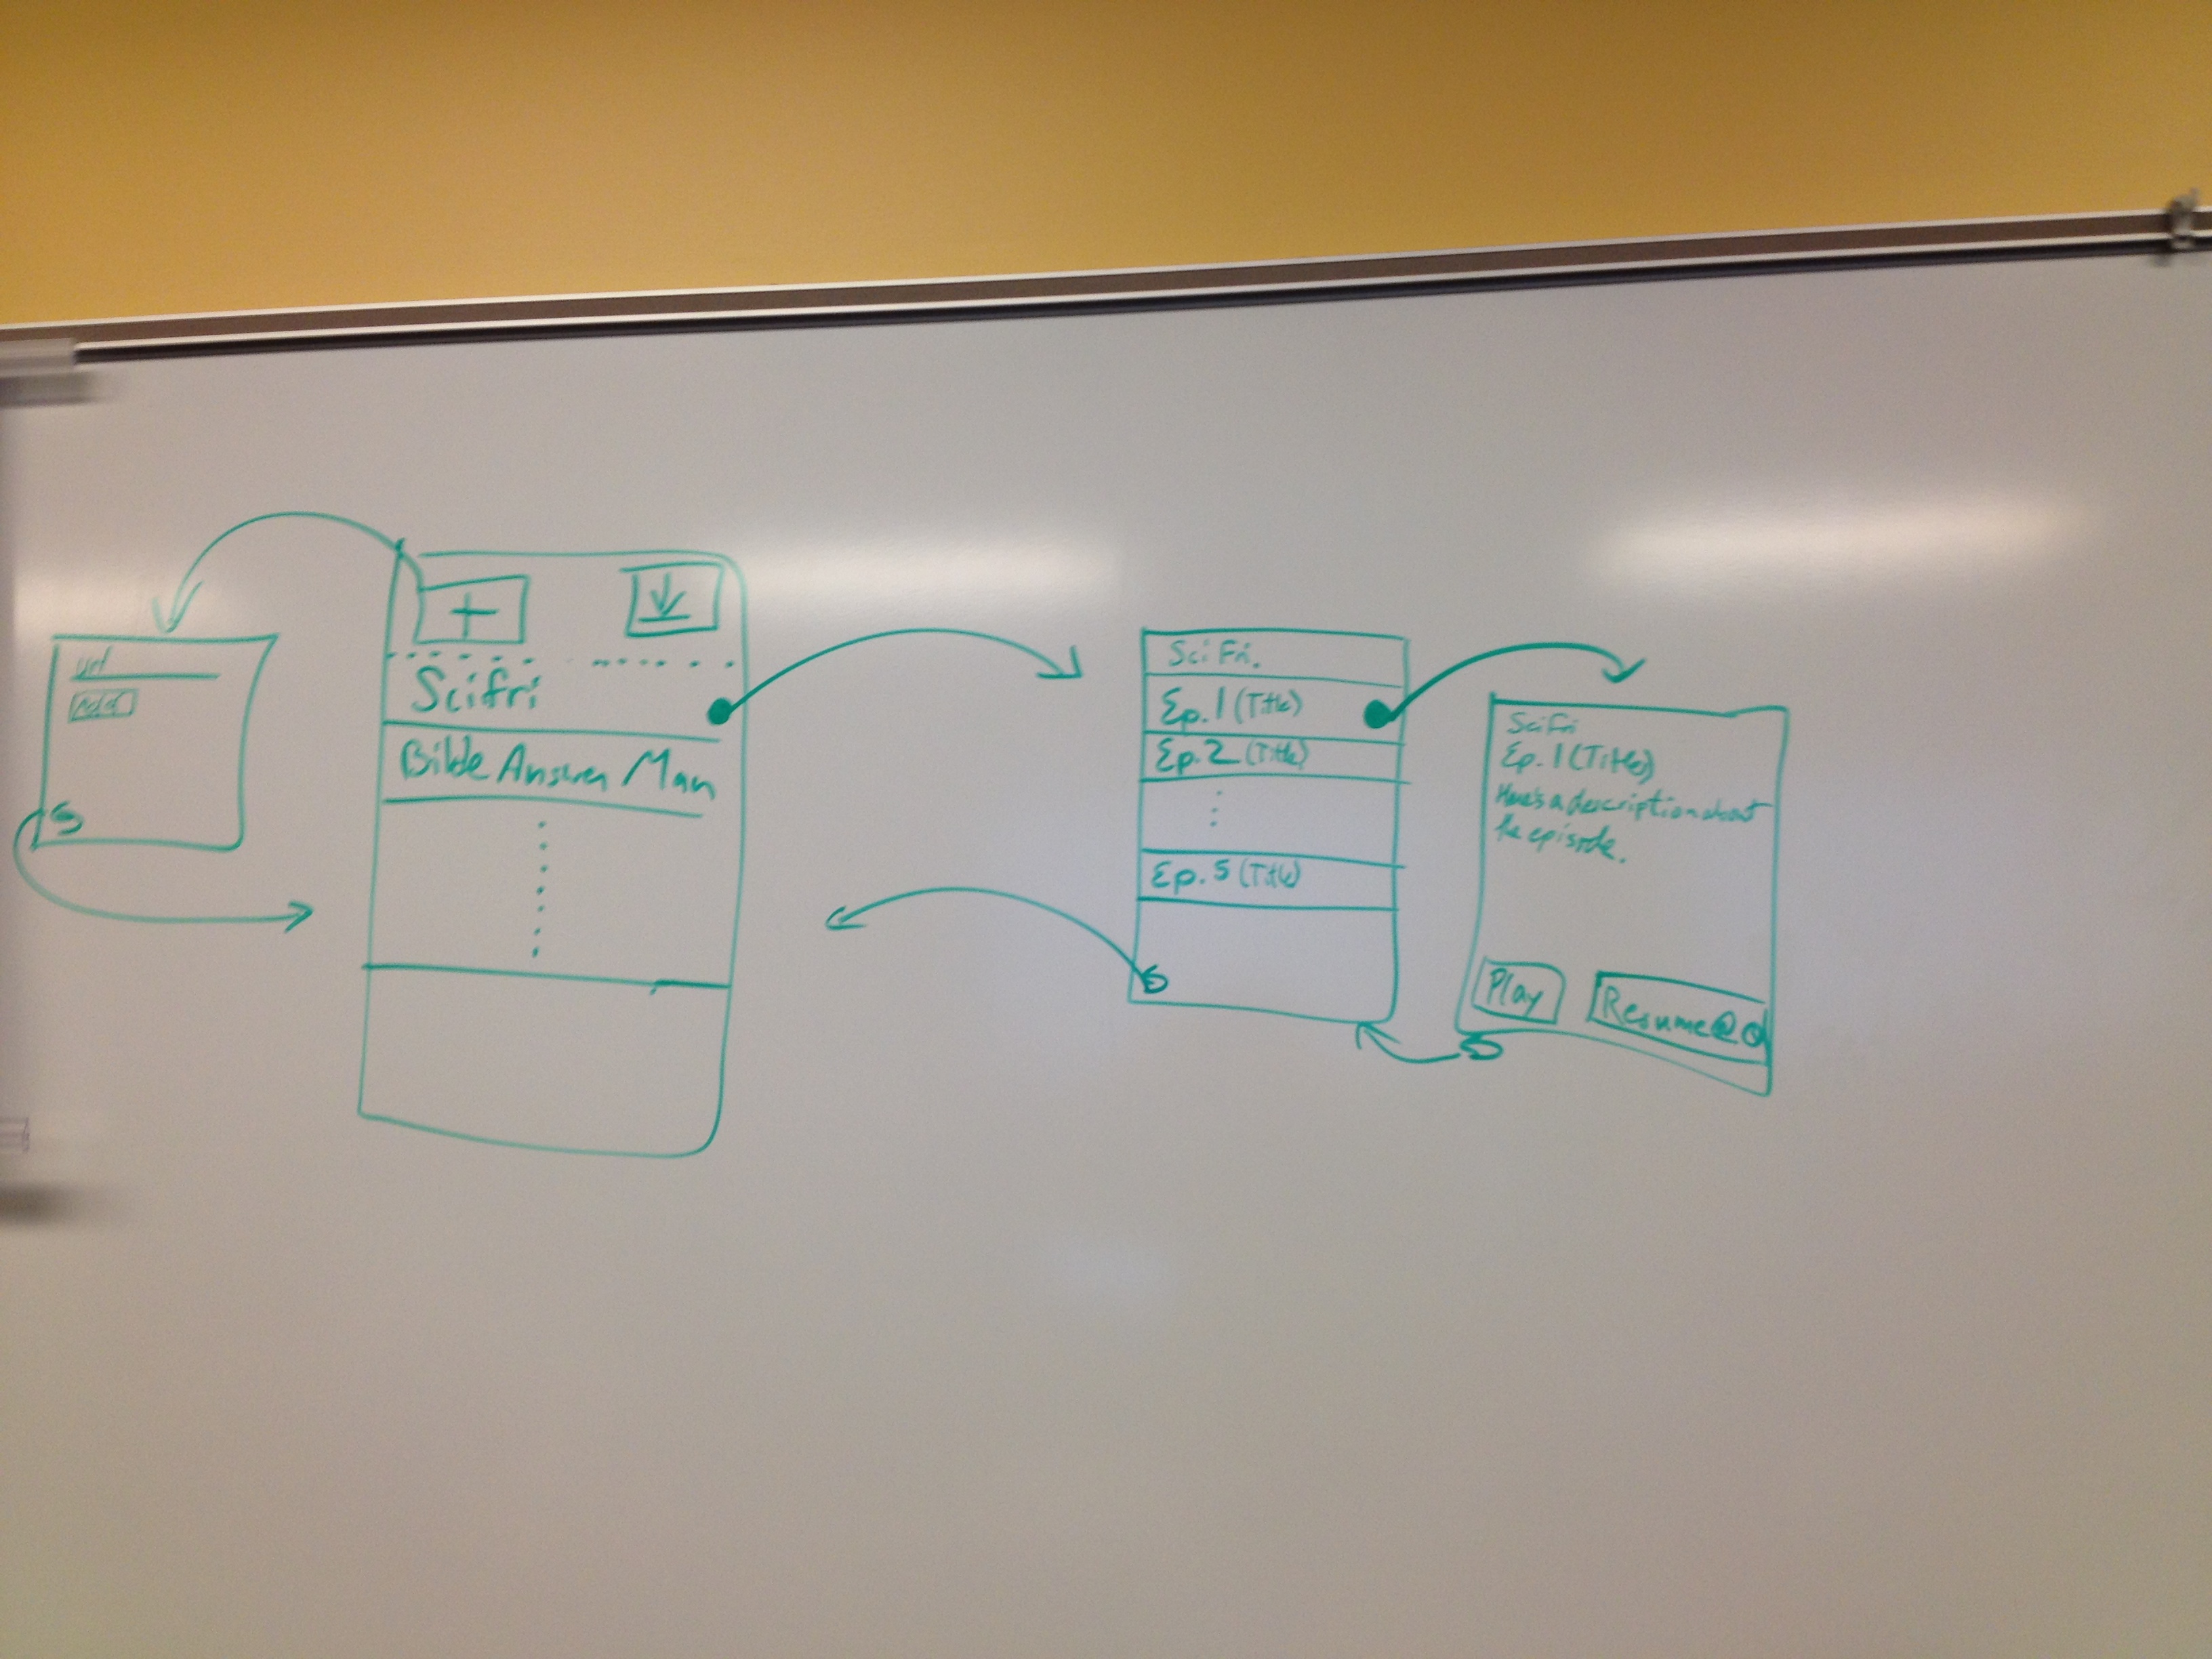 url
Add
+
Scifri
Bible Answer Man
Sci Fri.
Ep. 1 (Title)
Ep. 2 (Title)
Ep. 5 (Title)
SciFri
Ep. 1 (Title)
Here's a description about
the episode.
Play
Resume @